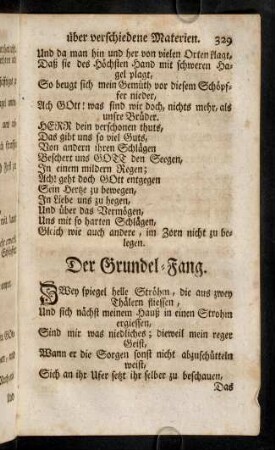 über verschiedene Materien. 329
Und da man hin und her von vielen Orten klagt,
Daß sie des Höchsten Hand mit schweren Ha-
gel plagt,
So beugt sich mein Gemüth vor diesem Schöpf-
fer nieder,
Ach GOtt! was sind wir doch, nichts mehr, als
unsre Brüder.
HERR dein verschonen thuts,
Das gibt uns so viel Guts,
Von andern ihren Schlägen
Beschert uns GOTT den Seegen,
In einem mildern Regen;
Ach! geht doch GOtt entgegen
Sein Hertze zu bewegen,
In Liebe uns zu hegen,
Und über das Vermögen,
Uns mit so harten Schlägen,
Gleich wie auch andere, im Zorn nicht zu be-
legen.
Der Grundel-Fang.
ZWey spiegel helle Ströhm, die aus zwey
Thälern fliessen,
Und sich nächst meinem Hauß in einen Strohm
ergiessen,
Sind mir was niedliches; dieweil mein reger
Geist,
Wann er die Sorgen sonst nicht abzuschütteln
weist,
Sich an ihr Ufer setzt ihr selber zu beschauen,
Das